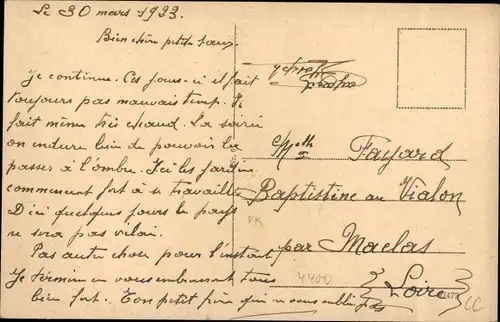 Le 30 mars 1923.
Bien chère petite sœur.
Je continue. Ces jours-ci il fait
toujours pas mauvais temp. Il
fait même très chaud. La soirée
on endure bien de pouvoir les
passer à l'ombre. Ici les jardins
commencent fort à se travailler
D'ici quelques jours le pays
ne sera pas vilain.
Pas autre chose pour l'instant
Je termine en vous embrassant tous
bien fort. Ton petit frère qui ne vous oublie pas
Joseph
Fayard
Baptistine au Vialon
par Maclas
Loire
VK
4400